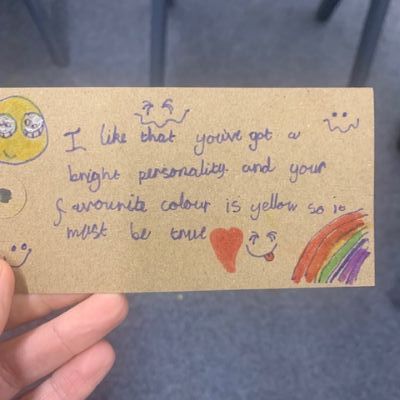 I like that you've got a
bright personality. and your
favourite colour is yellow so it
must be true